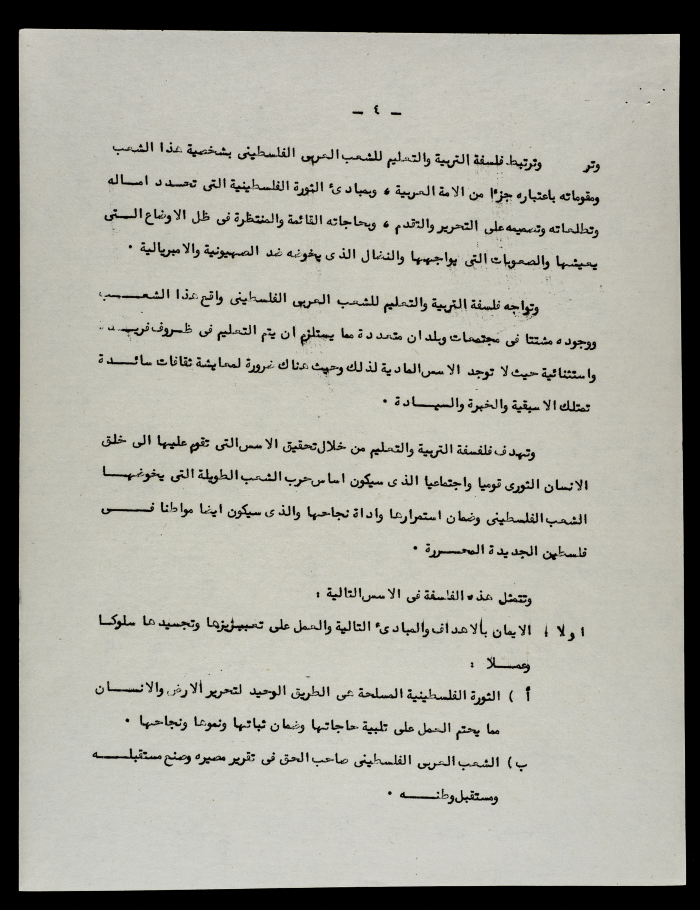 - ٤ -
وتر وترتبط فلسفة التربية والتعليم للشعب العربى الفلسطينى بشخصية هذا الشعب
ومقوماته باعتباره جزءا من الامة العربية ، وبمبادئ الثورة الفلسطينية التى تحدد اماله
وتطلعاته وتصميمه على التحرير والتقدم ، وبحاجاته القائمة والمنتظرة فى ظل الاوضاع التى
يعيشها والصعوبات التى يواجهها والنضال الذى يخوضه ضد الصهيونية والامبريالية .
وتواجه فلسفة التربية والتعليم للشعب العربى الفلسطينى واقع هذا الشعب
ووجوده مشتتا فى مجتمعات وبلدان متعددة مما يستلزم ان يتم التعليم فى ظروف فريدة
واستثنائية حيث لا توجد الاسس المادية لذلك وحيث هناك ضرورة لمعايشة ثقافات سائدة
تمتلك الاسبقية والخبرة والسيادة .
وتهدف فلفسفة التربية والتعليم من خلال تحقيق الاسس التى تقوم عليها الى خلق
الانسان الثورى قوميا واجتماعيا الذى سيكون اساس حرب الشعب الطويلة التى يخوضها
الشعب الفلسطينى وضمان استمرارها واداة نجاحها والذى سيكون ايضا مواطنا فى
فلسطين الجديدة المحررة .
وتتمثل هذه الفلسفة فى الاسس التالية :
اولا : الايمان بألاهداف والمبادئ التالية والعمل على تعزيزها وتجسيدها سلوكا
وعملا :
أ ) الثورة الفلسطينية المسلحة هى الطريق الوحيد لتحرير ألارض والانسان
مما يحتم العمل على تلبية حاجاتها وضمان ثباتها ونموها ونجاحها .
ب) الشعب العربى الفلسطينى صاحب الحق فى تقرير مصيره وصنع مستقبله
ومستقبل وطنه .